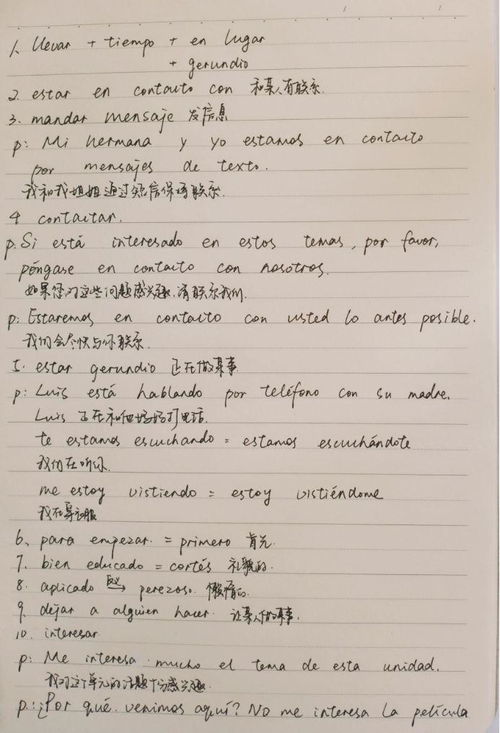 1. llevar + tiempo + en lugar
+ gerundio
2. estar en contacto con 和某人有联系.
3. mandar mensaje 发信息
p: Mi hermana y yo estamos en contacto
por mensajes de texto.
我和我姐姐通过短信保持联系.
4 contactar.
p: Si está interesado en estos temas, por favor,
póngase en contacto con nosotros.
如果你对这些问题感兴趣,请联系我们.
p: Estaremos en contacto con usted lo antes posible.
我们会尽快与你联系.
5. estar gerundio 正在做某事
p: Luis está hablando por teléfono con su madre.
Luis 正在和他妈妈打电话.
te estamos escuchando = estamos escuchándote
我们在听你.
me estoy vistiendo = estoy vistiéndome
我在穿衣服
6. para empezar. = primero 首先.
7. bien educado = cortés 礼貌的.
8. aplicado 反义 perezoso. 懒惰的.
9. dejar a alguien hacer. 让某人做某事.
10. interesar
p: Me interesa mucho el tema de esta unidad.
我对这个单元的话题十分感兴趣.
p: ¿Por qué venimos aquí? No me interesa la película